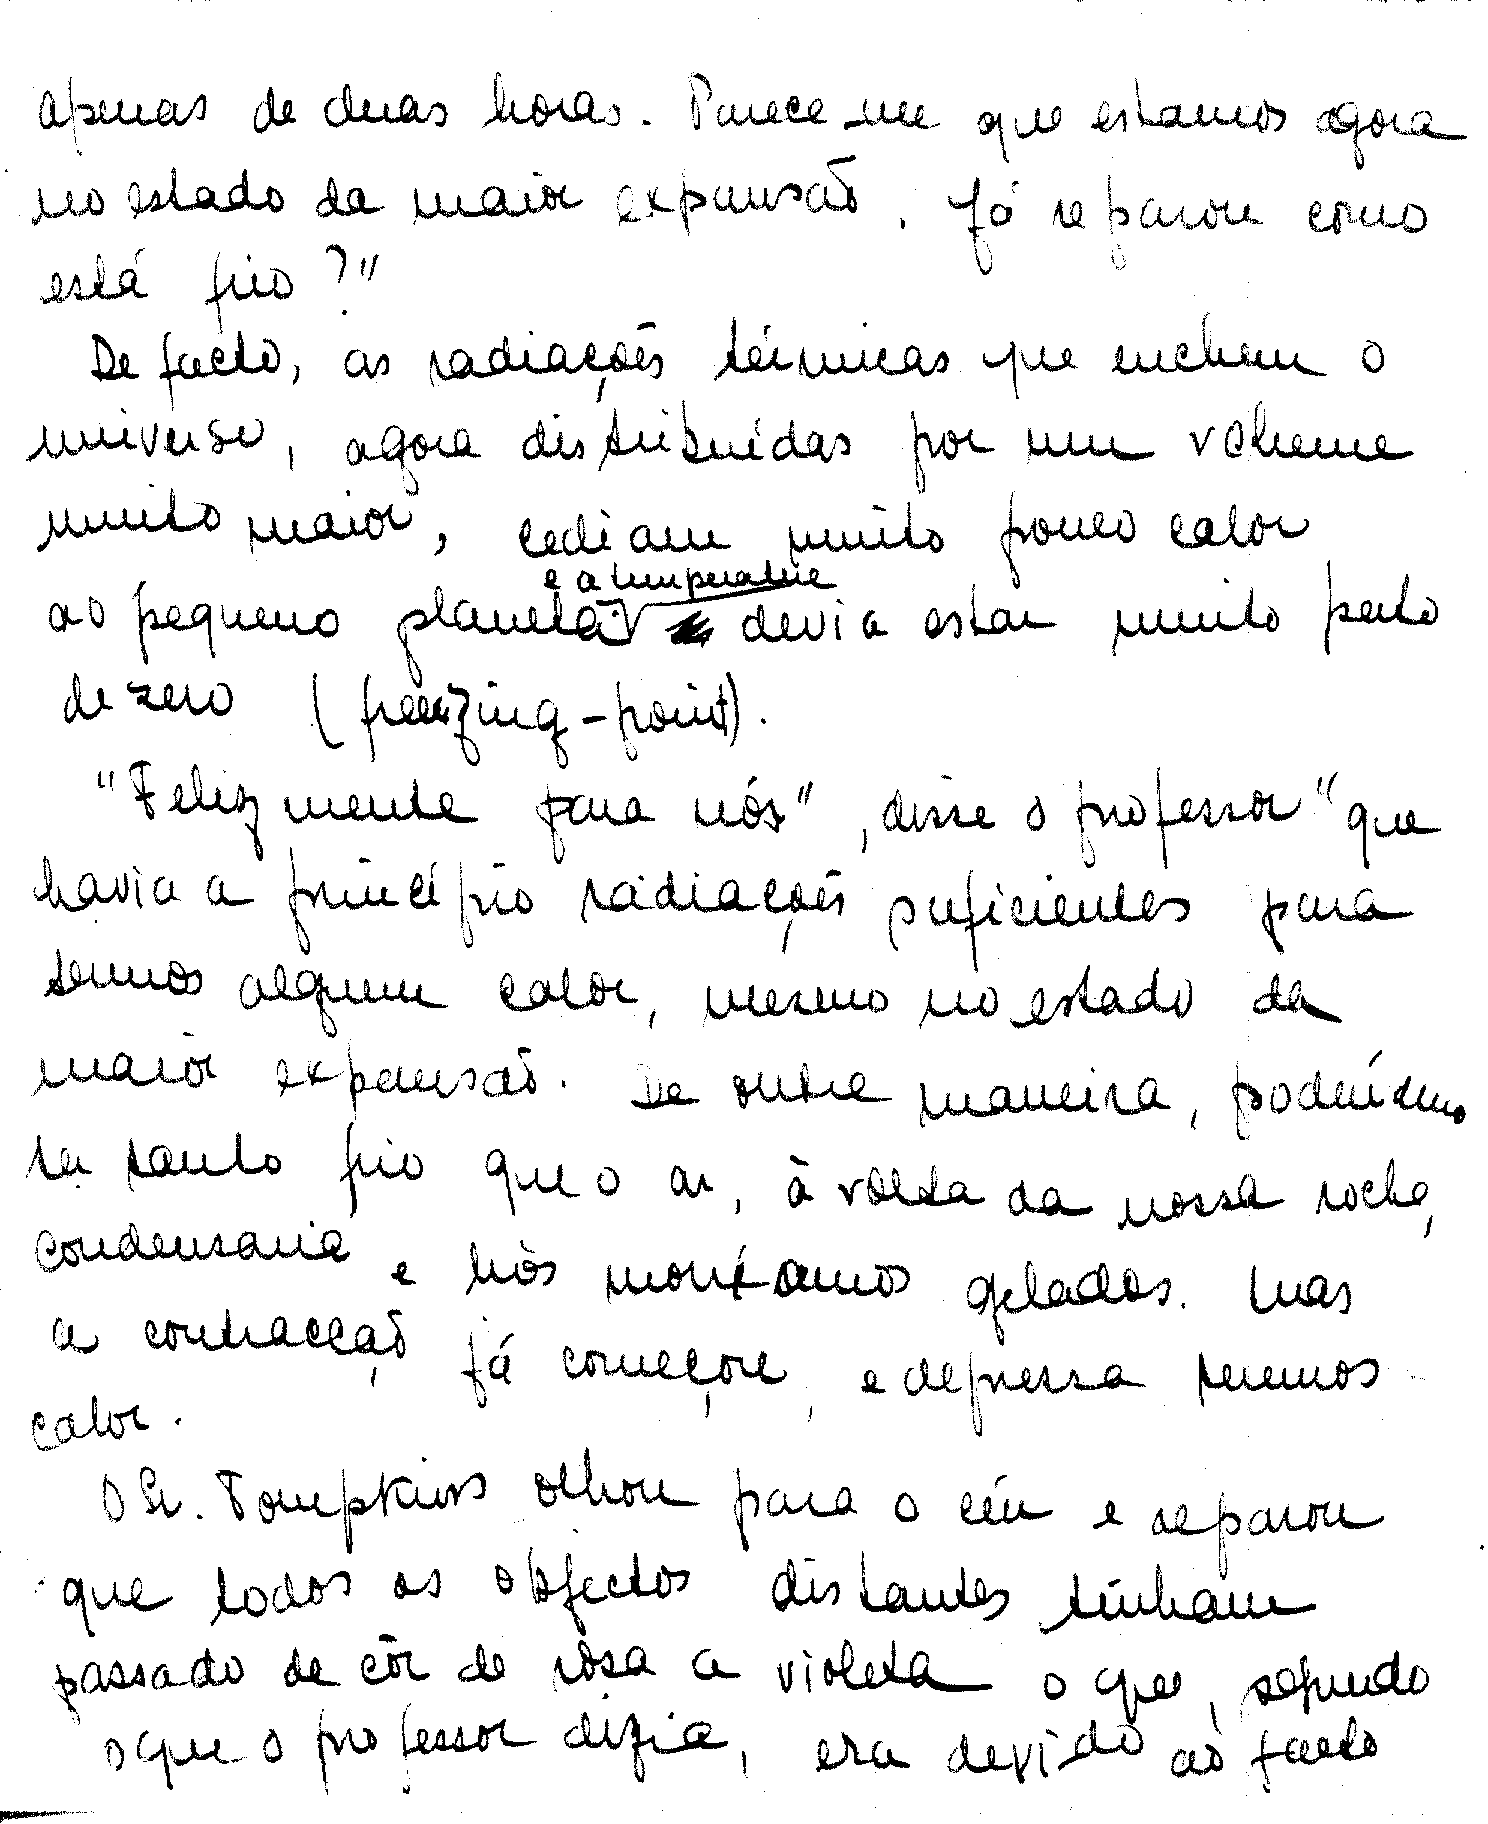 apenas de duas horas. Parece-me que estamos agora
no estado da maior expansão. Já reparou como
está frio?"
De facto, as radiações térmicas que enchem o
universo, agora distribuídas por um volume
muito maior, cediam muito pouco calor
e a temperatura
ao pequeno planeta devia estar muito perto
de zero (freezing-point).
"Felizmente para nós", disse o professor "que
havia a princípio radiações suficientes para
termos algum calor, mesmo no estado da
maior expansão. De outra maneira, poderíamos
ter tanto frio que o ar, à volta da nossa rocha,
condensaria e nós morríamos gelados. Mas
a contracção já começou, e depressa teremos
calor.
O Sr. Tompkins olhou para o céu e reparou
que todos os objectos distantes tinham
passado de côr de rosa a violeta o que, segundo
o que o professor dizia, era devido ao facto